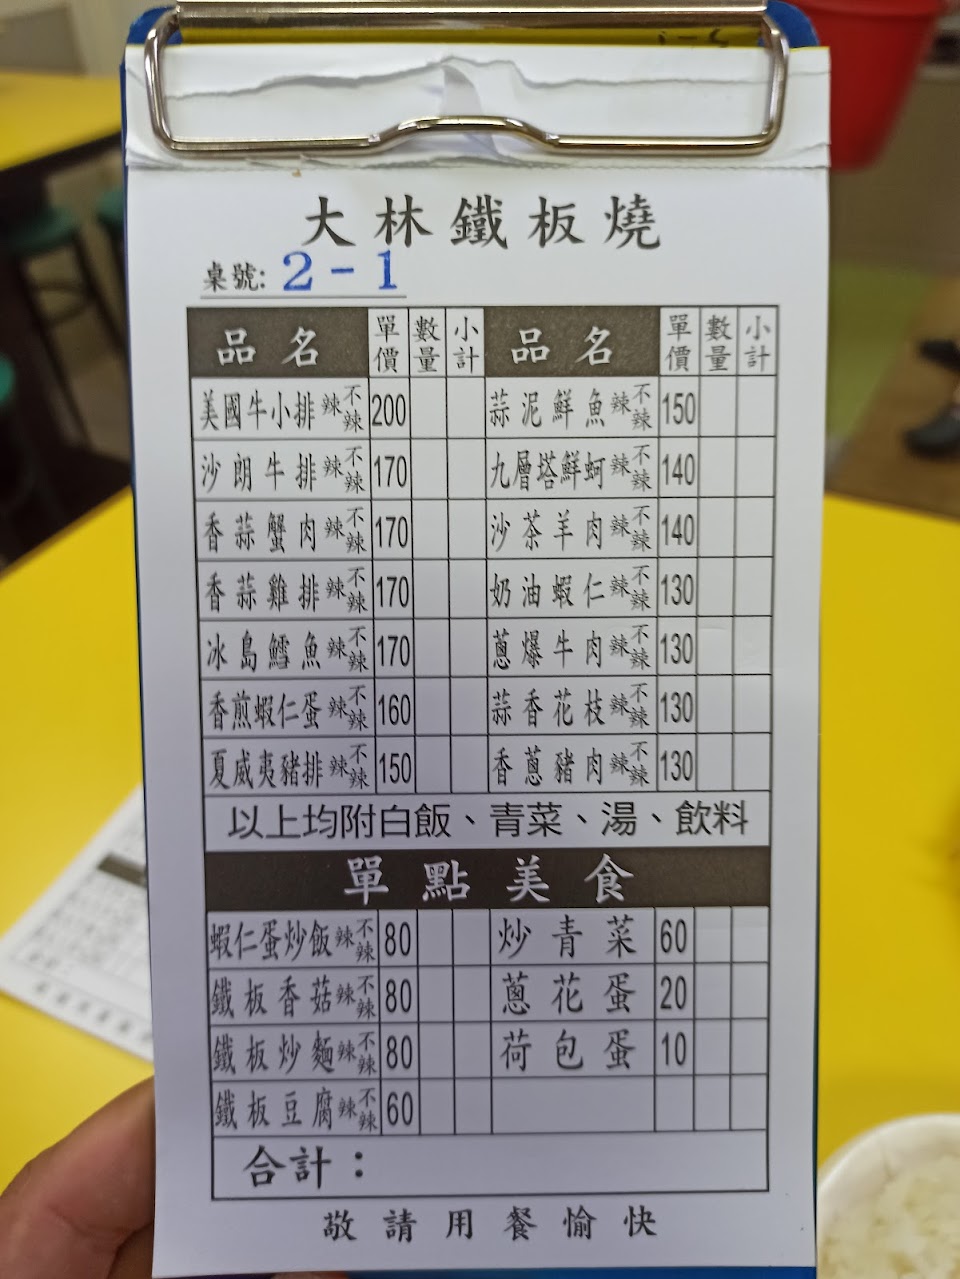 大林鐵板燒
桌號: 2-1
品名 單價 數量 小計 品名 單價 數量 小計
美國牛小排 辣 不辣 200 蒜泥鮮魚 辣 不辣 150
沙朗牛排 辣 不辣 170 九層塔鮮蚵 辣 不辣 140
香蒜蟹肉 辣 不辣 170 沙茶羊肉 辣 不辣 140
香蒜雞排 辣 不辣 170 奶油蝦仁 辣 不辣 130
冰島鱈魚 辣 不辣 170 蔥爆牛肉 辣 不辣 130
香煎蝦仁蛋 辣 不辣 160 蒜香花枝 辣 不辣 130
夏威夷豬排 辣 不辣 150 香蔥豬肉 辣 不辣 130
以上均附白飯、青菜、湯、飲料
單點美食
蝦仁蛋炒飯 辣 不辣 80 炒青菜 60
鐵板香菇 辣 不辣 80 蔥花蛋 20
鐵板炒麵 辣 不辣 80 荷包蛋 10
鐵板豆腐 辣 不辣 60
合計：
敬請用餐愉快